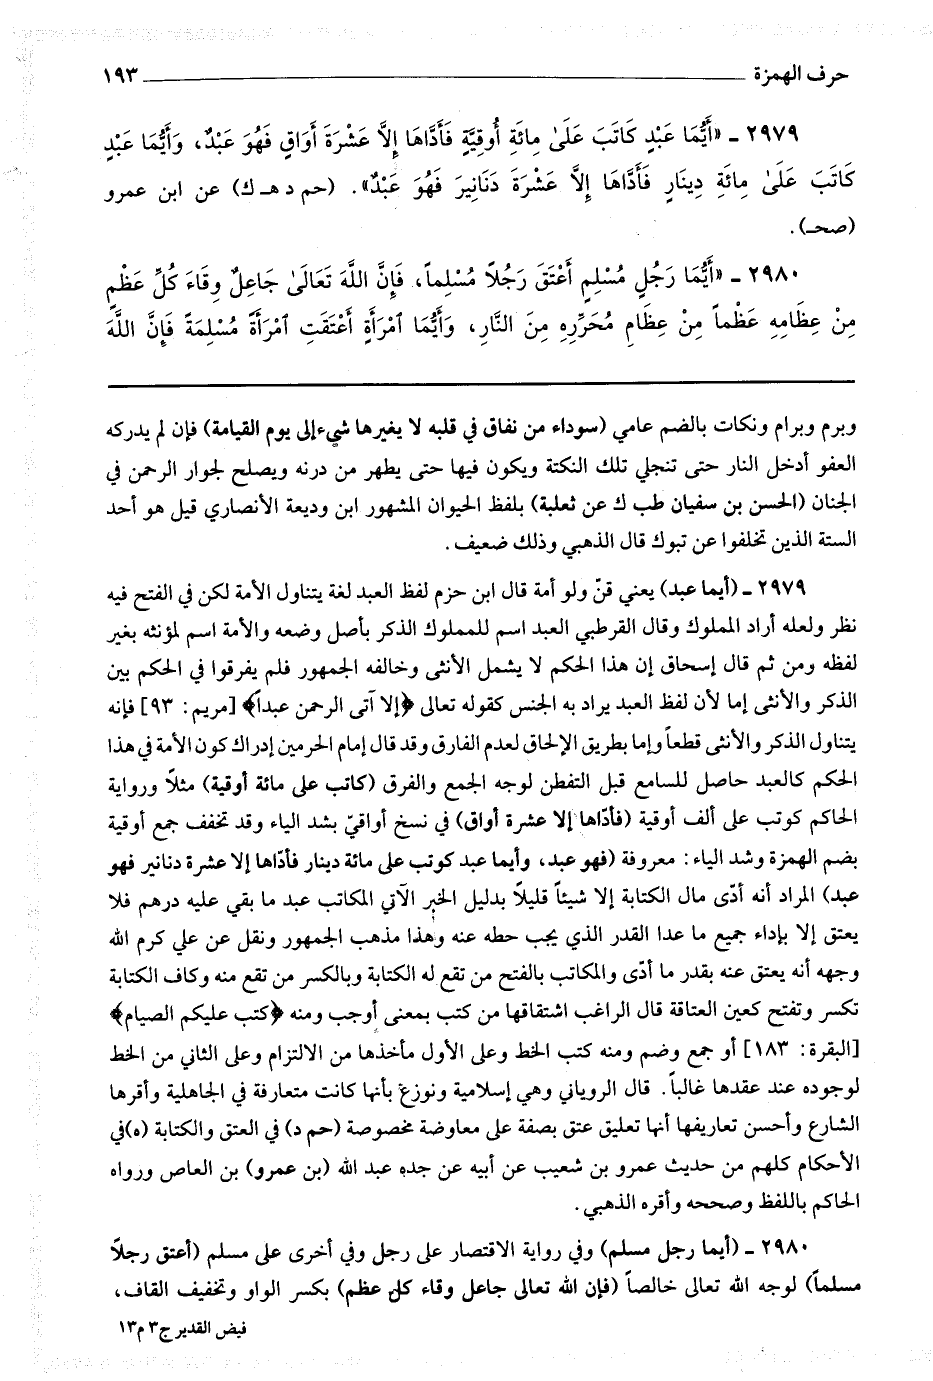 حرف الهمزة ١٩٣
٢٩٧٩ ـ «أَيُّمَا عَبْدٍ كَاتَبَ عَلَىٰ مِائَةِ أُوقِيَّةٍ فَأَدَّاهَا إِلاَّ عَشْرَةَ أَوَاقٍ فَهُوَ عَبْدٌ، وَأَيُّمَا عَبْدٍ
كَاتَبَ عَلَىٰ مِائَةِ دِينَارٍ فَأَدَّاهَا إِلاَّ عَشْرَةَ دَنَانِيرَ فَهُوَ عَبْدٌ». (حم د هـ ك) عن ابن عمرو
(صحـ).
٢٩٨٠ ـ «أَيُّمَا رَجُلٍ مُسْلِمٍ أَعْتَقَ رَجُلاً مُسْلِماً، فَإِنَّ اللَّهَ تَعَالَىٰ جَاعِلٌ وِقَاءَ كُلِّ عَظْمٍ
مِنْ عِظَامِهِ عَظْماً مِنْ عِظَامِ مُحَرِّرِهِ مِنَ النَّارِ، وَأَيُّمَا ٱمْرَأَةٍ أَعْتَقَتِ ٱمْرَأَةً مُسْلِمَةً فَإِنَّ اللَّهَ
وبرم وبرام ونكات بالضم عامي (سوداء من نفاق في قلبه لا يغيرها شيء إلى يوم القيامة) فإن لم يدركه
العفو أدخل النار حتى تنجلي تلك النكتة ويكون فيها حتى يطهر من درنه ويصلح لجوار الرحمن في
الجنان (الحسن بن سفيان طب ك عن ثعلبة) بلفظ الحيوان المشهور ابن وديعة الأنصاري قيل هو أحد
الستة الذين تخلفوا عن تبوك قال الذهبي وذلك ضعيف.
٢٩٧٩ ـ (أيما عبد) يعني قنّ ولو أمة قال ابن حزم لفظ العبد لغة يتناول الأمة لكن في الفتح فيه
نظر ولعله أراد المملوك وقال القرطبي العبد اسم للمملوك الذكر بأصل وضعه والأمة اسم لمؤنثه بغير
لفظه ومن ثم قال إسحاق إن هذا الحكم لا يشمل الأنثى وخالفه الجمهور فلم يفرقوا في الحكم بين
الذكر والأنثى إما لأن لفظ العبد يراد به الجنس كقوله تعالى ﴿إلا آتى الرحمن عبداً﴾ [مريم: ٩٣] فإنه
يتناول الذكر والأنثى قطعاً وإما بطريق الإلحاق لعدم الفارق وقد قال إمام الحرمين إدراك كون الأمة في هذا
الحكم كالعبد حاصل للسامع قبل التفطن لوجه الجمع والفرق (كاتب على مائة أوقية) مثلاً ورواية
الحاكم كوتب على ألف أوقية (فأدّاها إلا عشرة أواق) في نسخ أواقيّ بشد الياء وقد تخفف جمع أوقية
بضم الهمزة وشد الياء: معروفة (فهو عبد، وأيما عبد كوتب على مائة دينار فأدّاها إلا عشرة دنانير فهو
عبد) المراد أنه أدّى مال الكتابة إلا شيئاً قليلاً بدليل الخبر الآتي المكاتب عبد ما بقي عليه درهم فلا
يعتق إلا بإداء جميع ما عدا القدر الذي يجب حطه عنه وهذا مذهب الجمهور ونقل عن علي كرم الله
وجهه أنه يعتق عنه بقدر ما أدّى والمكاتب بالفتح من تقع له الكتابة وبالكسر من تقع منه وكاف الكتابة
تكسر وتفتح كعين العتاقة قال الراغب اشتقاقها من كتب بمعنى أوجب ومنه ﴿كتب عليكم الصيام﴾
[البقرة: ١٨٣] أو جمع وضم ومنه كتب الخط وعلى الأول مأخذها من الالتزام وعلى الثاني من الخط
لوجوده عند عقدها غالباً. قال الروياني وهي إسلامية ونوزع بأنها كانت متعارفة في الجاهلية وأقرها
الشارع وأحسن تعاريفها أنها تعليق عتق بصفة على معاوضة مخصوصة (حم د) في العتق والكتابة (ه)في
الأحكام كلهم من حديث عمرو بن شعيب عن أبيه عن جده عبد الله (بن عمرو) بن العاص ورواه
الحاكم باللفظ وصححه وأقره الذهبي.
٢٩٨٠ ـ (أيما رجل مسلم) وفي رواية الاقتصار على رجل وفي أخرى على مسلم (أعتق رجلاً
مسلماً) لوجه الله تعالى خالصاً (فإن الله تعالى جاعل وقاء كل عظم) بكسر الواو وتخفيف القاف،
فيض القدير ج٣ م١٣